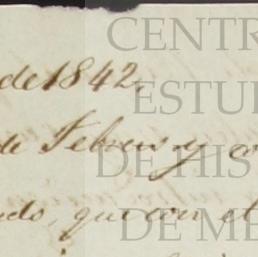 de 1842.
de Febrero y co
do, que con et
CENTR
ESTU
DE HIS
DE ME